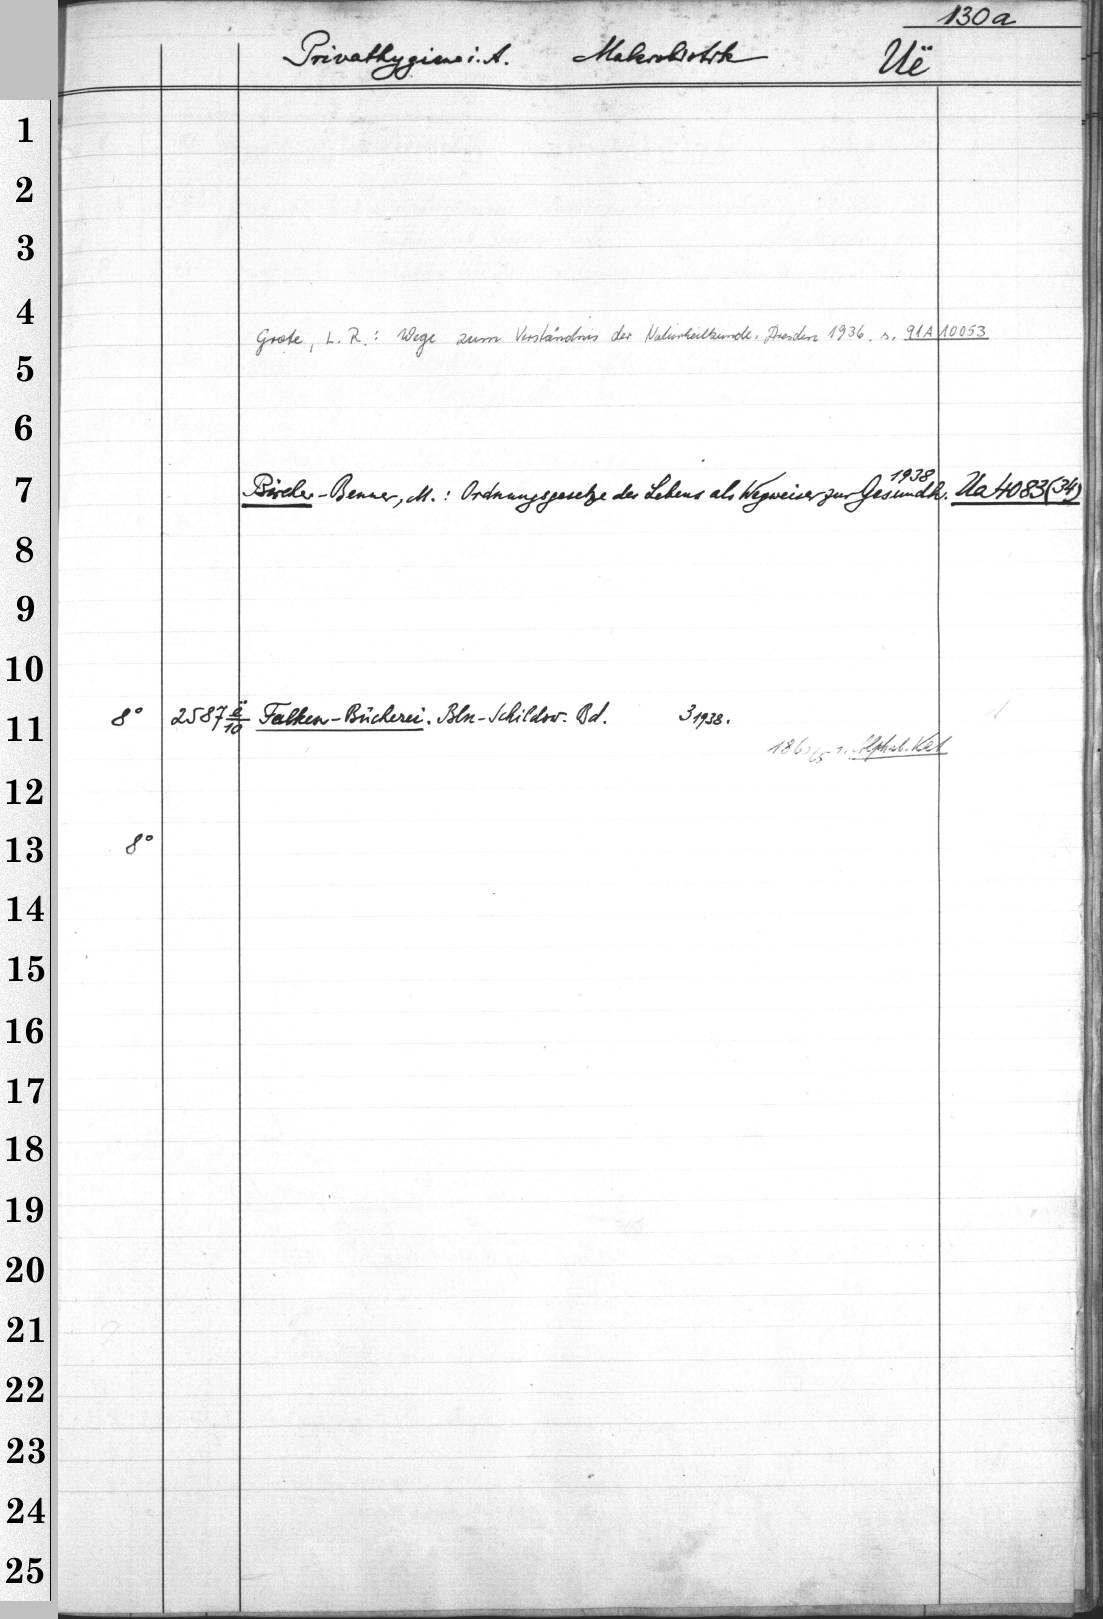 130a
Privathygiene i. A. Makrobiotik Uë
1
2
3
4
Grote, L. R.: Wege zum Verständnis der Naturheilkunde. Dresden 1936. s. 91A10053
5
6
7
Bircher-Benner, M.: Ordnungsgesetze des Lebens als Wegweiser zur Gesundh. 1938. Ua 4083(34)
8
9
10
11
8° 2587 ë/10 Falken-Bücherei. Bln-Schildow. Bd. 3 1938.
s. Alphab. Kat
12
13
8°
14
15
16
17
18
19
20
21
22
23
24
25